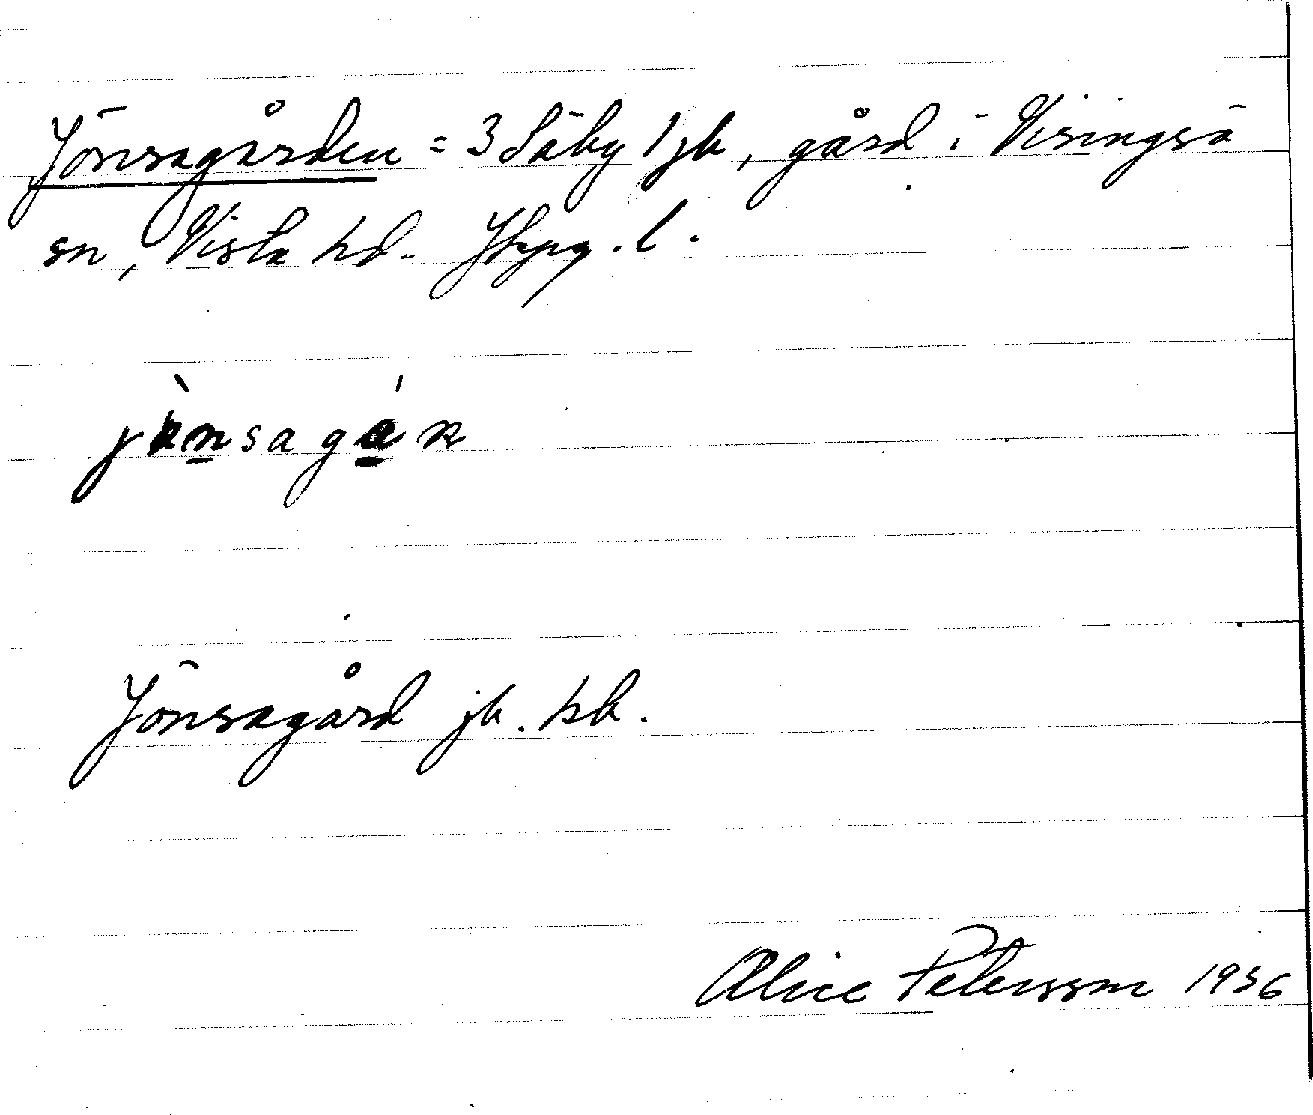 Jönsagården = 3 Säby 1 jb, gård i Visingsö
sn, Vista hd. Jkpg. l.
Jönsagård jb. kb.
Alice Petersson 1936